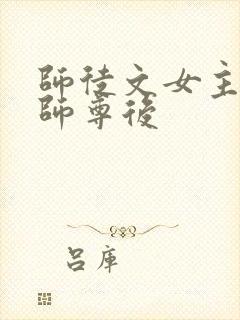 師徒文女主
師尊後
呂庫